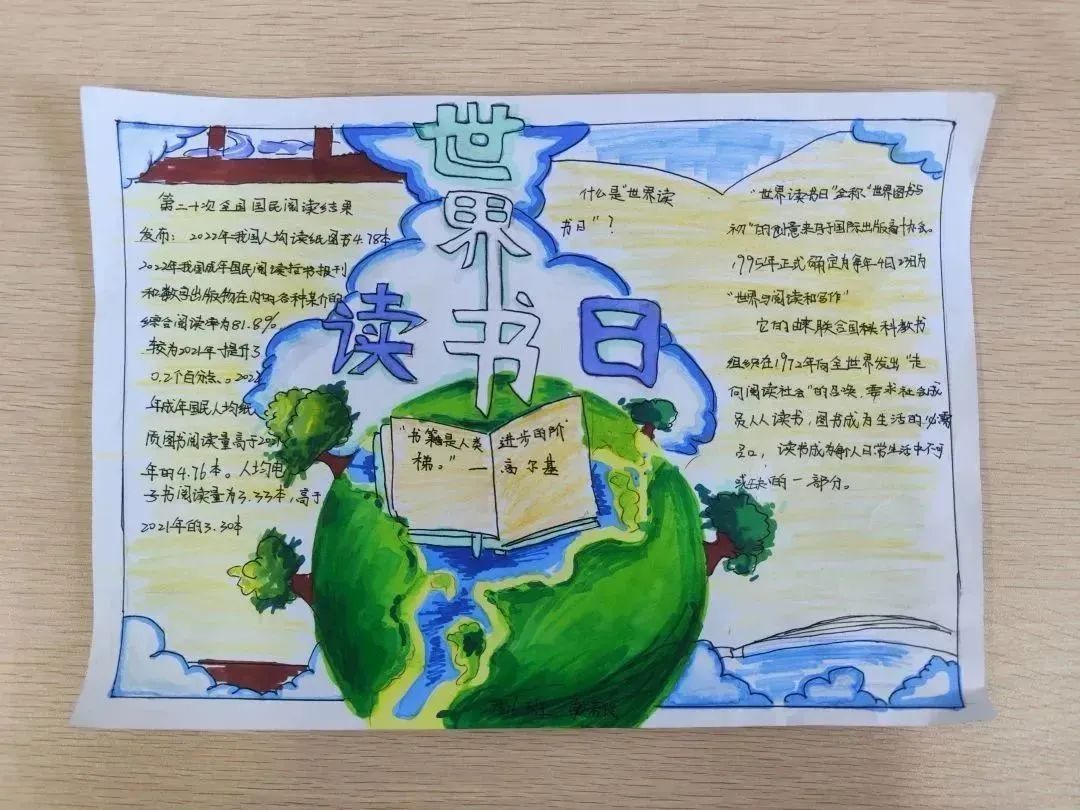 世
界
读书日
第二十次全国国民阅读结果
发布：2022年我国人均读纸图书4.78本
2022年我国成年国民阅读括书报刊
和数字出版物在内的各种某介的
综合阅读率为81.8%
较为2021年提升了
0.2个百分点。2022
年成年国民人均纸
质图书阅读量高于2021
年的4.76本。人均电
子书阅读量为3.33本，高于
2021年的3.30本
"书籍是人类进步的阶
梯。"—高尔基
什么是"世界读
书日"？
"世界读书日"全称"世界图书与
"的创意来自于国际出版商协会。
1995年正式确定为每年4月23日为
"世界与阅读和写作"
它的由来联合国秧科教书
组织在1972年向全世界发出"走
向阅读社会"的召唤，要求社会成
员人人读书，图书成为生活的必需
品，读书成为每个人日常生活中不可
或缺的一部分。